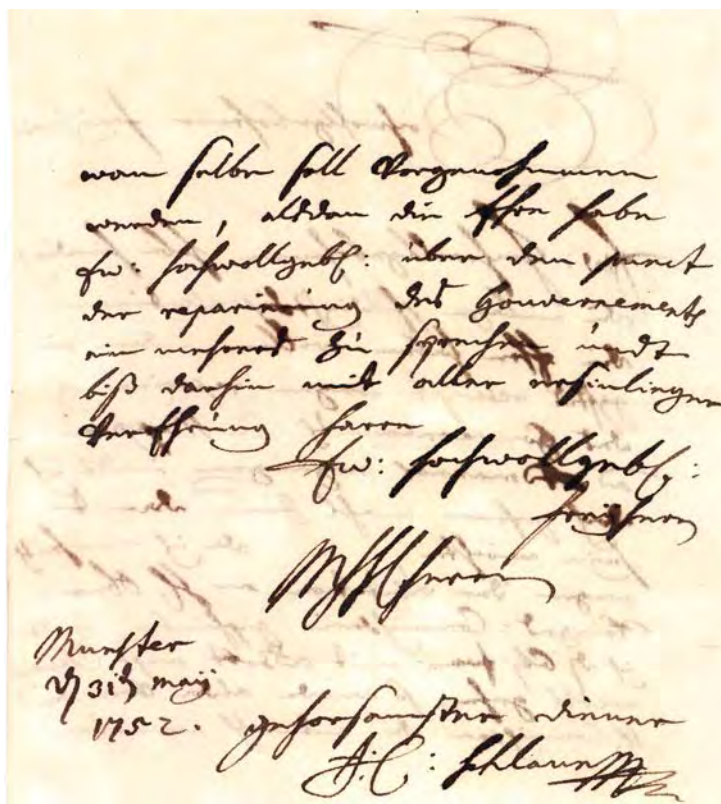 wan selbe soll Vorgenohmmen
werden, alsdan die Ehre habe
Ew: hochwollgebh: über den punct
der reparirung des Gouvernements
ein mehreres zu sprechen undt
biß dahin mit aller ersinlinger
Verehrung harre
Ew: hochwollgebh:
freyherrn
Munster
d 31t maij
1752. gehorsambster diener
J: C: Schlaun